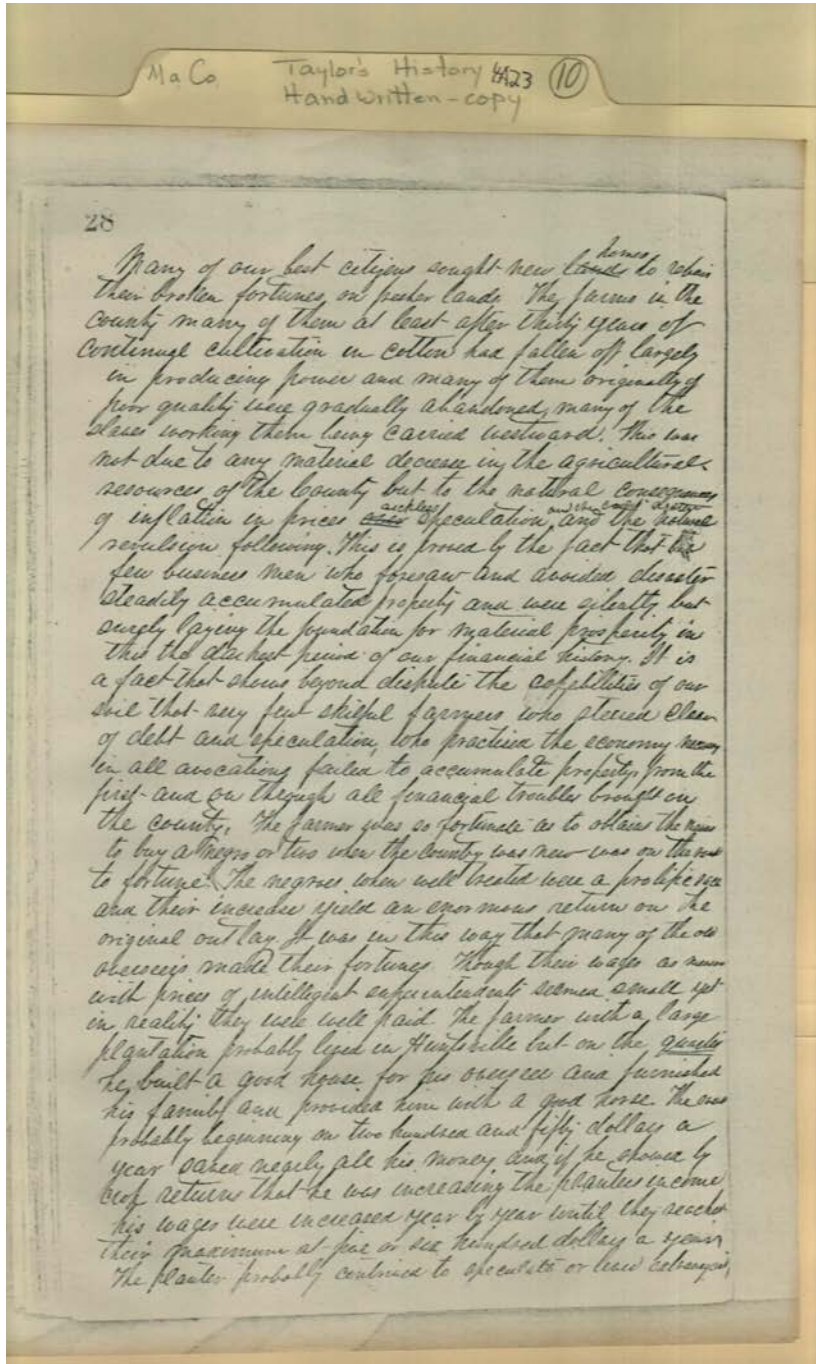 Ma. Co. Taylor's History 4A23 10
Handwritten - copy
28
homes
Many of our best citizens sought new lands to retain
their broken fortunes, on fresher lands. The farms in the
county many of them at least after thirty years of
continual cultivation in cotton had fallen off largely
in producing power and many of them originally of
poor quality were gradually abandoned, many of the
slaves working them being carried westward. This was
not due to any material decrease in the agricultural
resources of the County but to the natural consequences
reckless and the
of inflation in prices over speculation, and the natural
revulsion following. This is proved by the fact that the
few business men who foresaw and avoided disaster
steadily accumulated property and were silently but
surely laying the foundation for material prosperity in
this the darkest period of our financial history. It is
a fact that shows beyond dispute the capabilities of our
soil that very few skilful farmers who steered clear
of debt and speculation, who practised the economy necessary
in all avocations failed to accumulate property from the
first and on through all financial troubles brought on
the county. The farmer was so fortunate as to obtain the means
to buy a negro or two when the country was new was on the road
to fortune. The negroes when well treated were a prolific race
and their increase yield an enormous return on the
original outlay. It was in this way that many of the old
overseers made their fortunes. Though their wages as
with prices of intelligent superintendents seemed small yet
in reality they were well paid. The farmer with a large
plantation probably lived in Huntsville but on the quarter
he built a good house for his overseer and furnished
his family and provided him with a good horse. The
probably beginning on two hundred and fifty dollars a
year saved nearly all his money and if he showed by
crop returns that he was increasing the planters income
his wages were increased year by year until they reached
their maximum at five or six hundred dollars a year.
The planter probably continued to speculate or